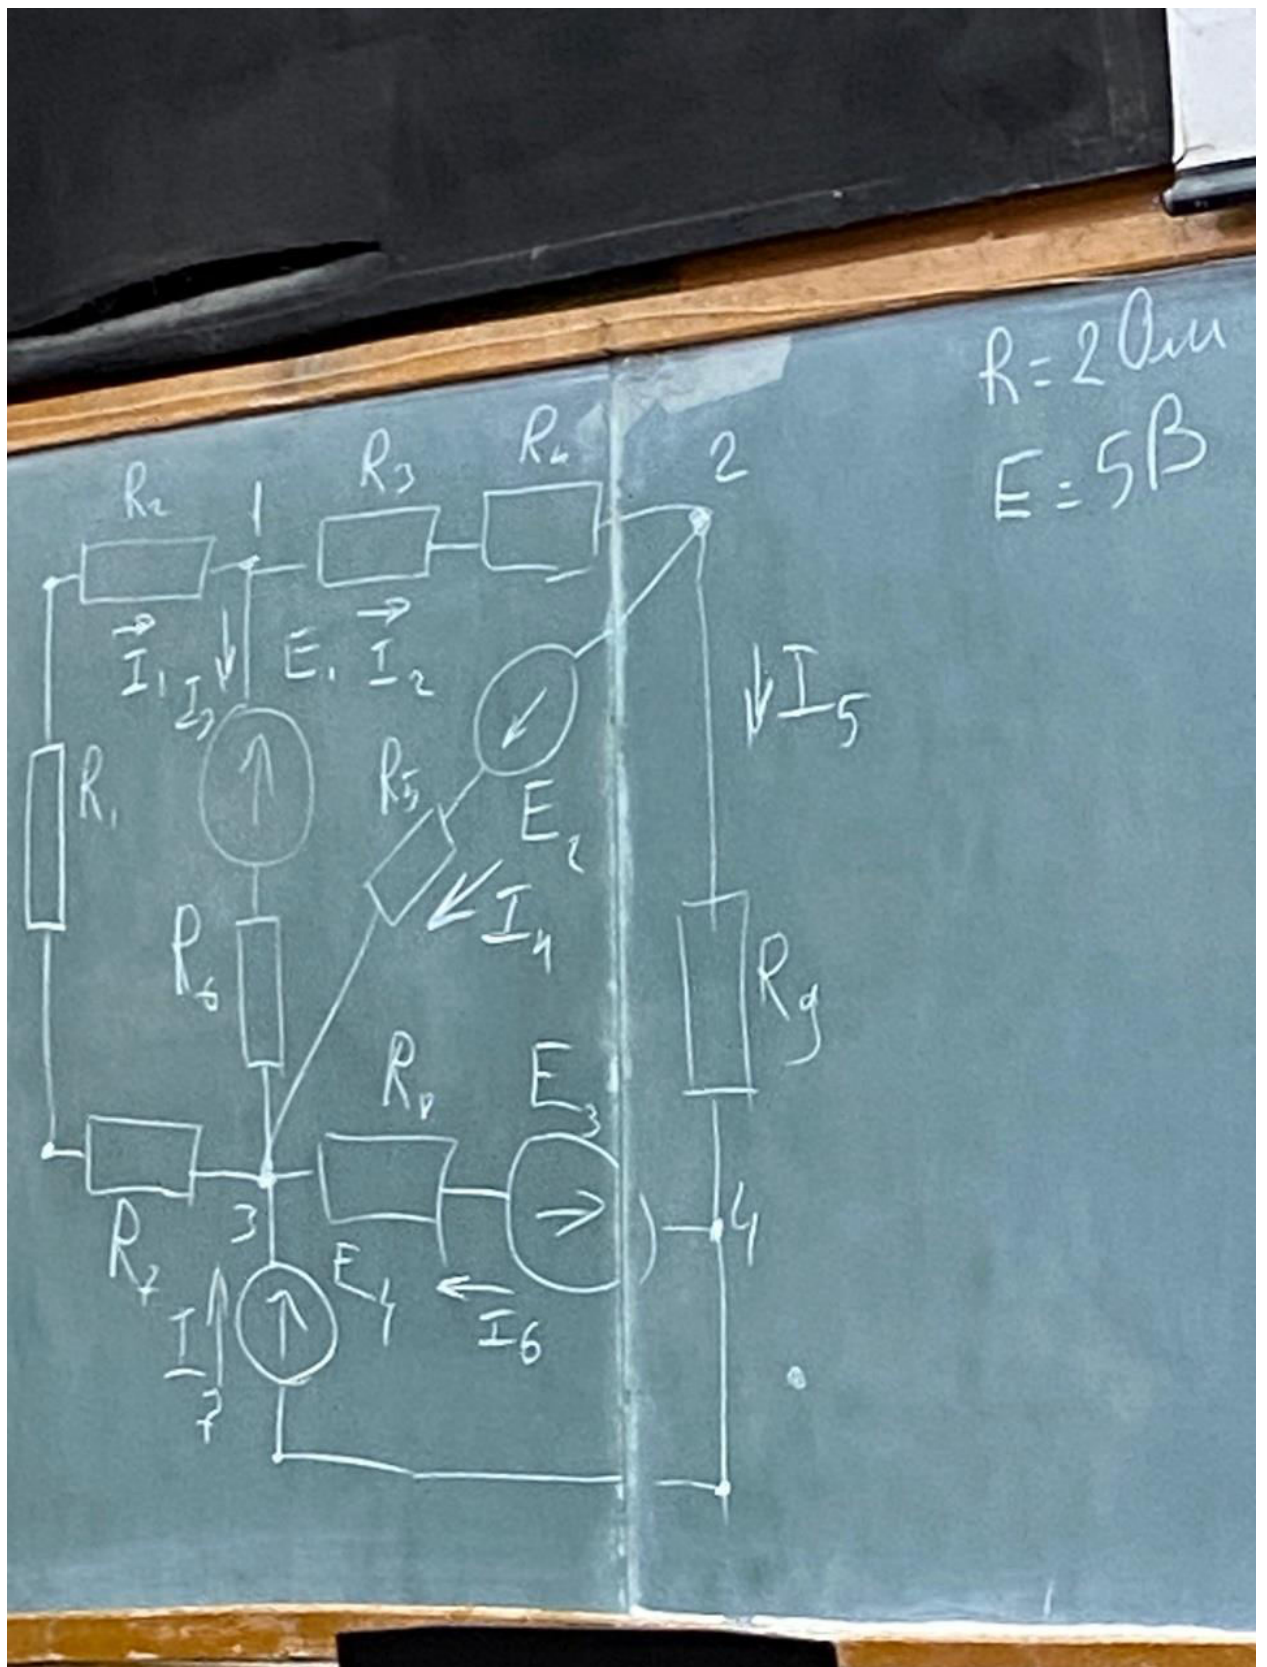 R=2 Ом
E=5В
R₂ 1 R₃ R₄ 2
I₁ I₃ E₁ I₂
I₅
R₁ R₅ E₂
I₄
R₆ R₉
R₈ E₃
3 4
R₇ E₄
I₇ I₆